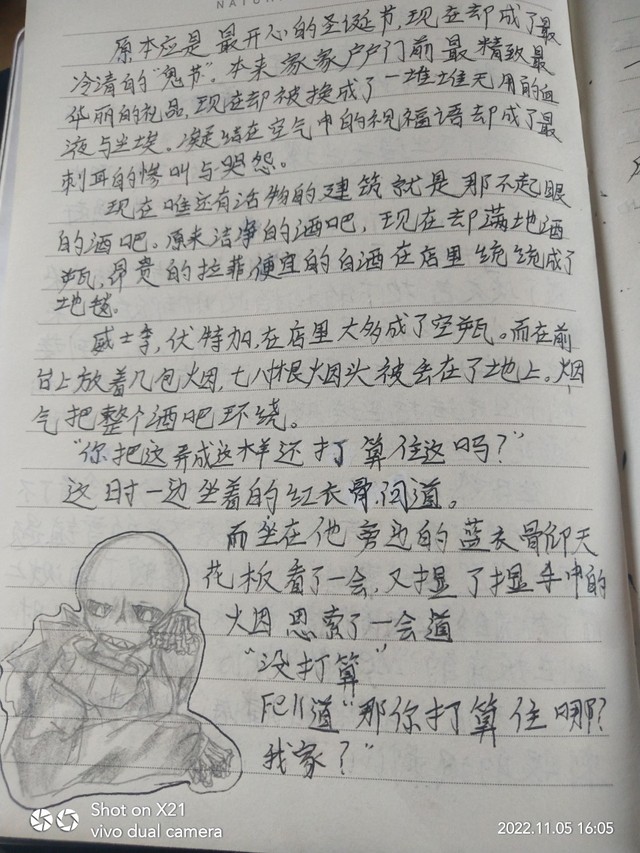 NATUR
原本应是最开心的圣诞节,现在却成了最
冷清的"鬼节"。本来家家户户门前最精致最
华丽的礼品,现在却被换成了一堆堆无用的血
液与尘埃。凝结在空气中的祝福语却成了最
刺耳的惨叫与哭怨。
现在唯还有活物的建筑就是那不起眼
的酒吧。原来洁净的酒吧,现在却满地酒
瓶,昂贵的拉菲,便宜的白酒在店里统统成了
地毯。
威士李,伏特加,在店里大多成了空瓶。而在前
台上放着几包烟,七八根烟头被丢在了地上。烟
气把整个酒吧环绕。
"你把这弄成这样还打算住这吗?"
这时一边坐着的红衣骨问道。
而坐在他旁边的蓝衣骨仰天
花板看了一会,又揾了揾手中的
火因思索了一会道
"没打算"
Fell道"那你打算住哪?
我家?"
Shot on X21
vivo dual camera
2022.11.05 16:05